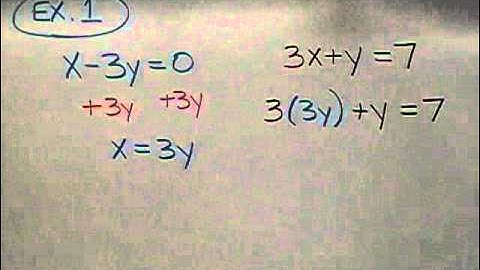 EX. 1
x-3y=0
+3y +3y
x=3y
3x+y=7
3(3y)+y=7